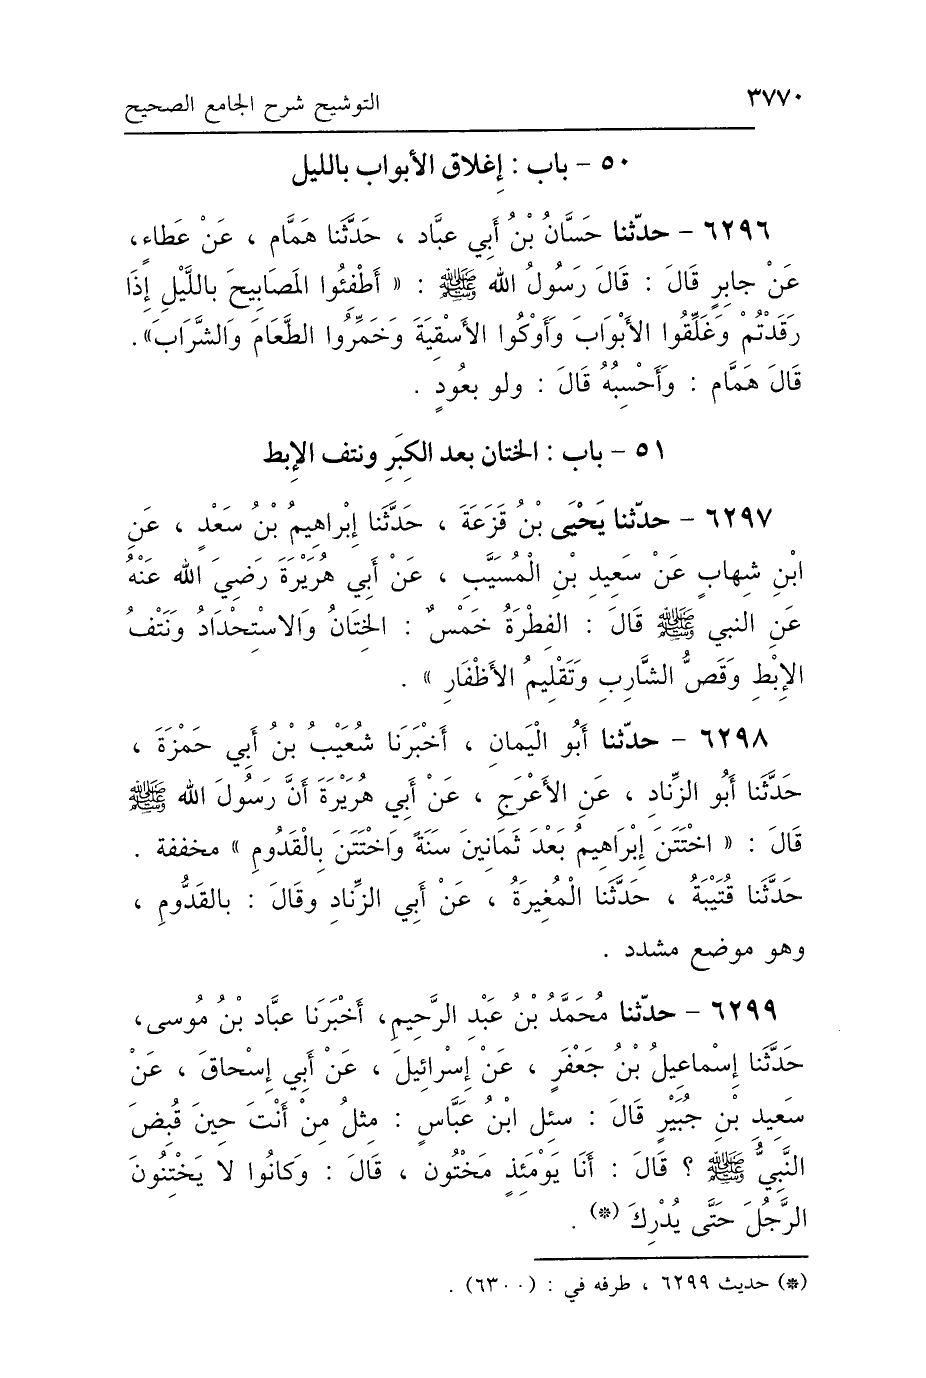 ٣٧٧٠
التوشيح شرح الجامع الصحيح
٥٠ - باب : إغلاق الأبواب بالليل
٦٢٩٦ - حدّثنا حَسَّانُ بْنُ أَبِي عبَّاد ، حَدَّثَنا همَّام ، عَنْ عَطاءٍ،
عَنْ جابِرٍ قَالَ : قَالَ رَسُولُ الله ﷺ : « أَطْفِئُوا المَصَابِيحَ باللَّيْلِ إِذَا
رَقَدْتُمْ وَغَلِّقُوا الأَبْوَابَ وَأَوْكُوا الأَسْقِيَةَ وَخَمِّرُوا الطَّعَامَ وَالشَّرَابَ».
قَالَ هَمَّام : وَأَحْسِبُهُ قَالَ : ولو بعُودٍ .
٥١ - باب : الختان بعد الكِبَرِ ونتف الإبط
٦٢٩٧ - حدّثنا يَحْيَى بْنُ قَزَعَةَ ، حَدَّثَنا إِبْراهِيمُ بْنُ سَعْدٍ ، عَنِ
ابْنِ شِهابٍ عَنْ سَعِيدِ بْنِ الْمُسَيَّبِ ، عَنْ أَبِي هُرَيْرَةَ رَضِيَ الله عَنْهُ
عَنِ النبي ﷺ قَالَ : الفِطْرَةُ خَمْسٌ : الخِتَانُ وَالاسْتِحْدَادُ وَنَتْفُ
الإِبْطِ وَقَصُّ الشَّارِبِ وَتَقْلِيمُ الأَظْفَارِ » .
٦٢٩٨ - حدّثنا أَبُو الْيَمانِ ، أَخْبَرَنا شُعَيْبُ بْنُ أَبِي حَمْزَةَ ،
حَدَّثَنا أَبُو الزِّنادِ ، عَنِ الأَعْرَجِ ، عَنْ أَبِي هُرَيْرَةَ أَنَّ رَسُولَ الله ﷺ
قَالَ : « اخْتَتَنَ إِبْرَاهِيمُ بَعْدَ ثَمَانِينَ سَنَةً وَاخْتَتَنَ بِالْقَدُومِ » مخففة .
حَدَّثَنا قُتَيْبَةُ ، حَدَّثَنا الْمُغِيرَةُ ، عَنْ أَبِي الزِّنادِ وقَالَ : بالقَدُّومِ ،
وهو موضع مشدد .
٦٢٩٩ - حدّثنا مُحَمَّدُ بْنُ عَبْدِ الرَّحِيمِ، أَخْبَرَنا عبَّاد بْنُ مُوسى،
حَدَّثَنا إِسْماعِيلُ بْنُ جَعْفَرٍ ، عَنْ إِسْرائِيلَ ، عَنْ أَبِي إِسْحاقَ ، عَنْ
سَعِيدِ بْنِ جُبَيْرٍ قَالَ : سئل ابْنُ عَبَّاسٍ : مِثلُ مِنْ أَنْتَ حِينَ قُبِضَ
النَّبِيُّ ﷺ ؟ قَالَ : أَنَا يَوْمَئِذٍ مَخْتُون ، قَالَ : وَكَانُوا لا يَخْتِنُونَ
الرَّجُلَ حَتَّى يُدْرِكَ (*) .
(*) حديث ٦٢٩٩ ، طرفه في : (٦٣٠٠) .